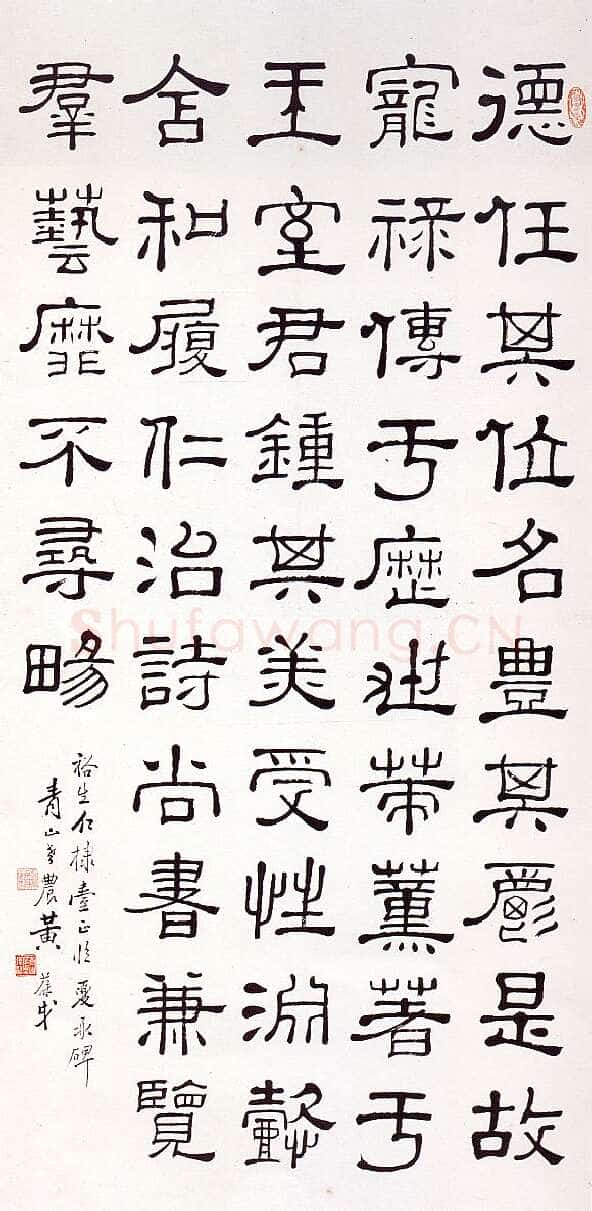 德任其位名豐其爵是故
寵祿傳于歷世策薰著于
王室君鍾其美受性淵懿
含和履仁治詩尚書兼覽
羣藝靡不尋畼
裕生仁棣正臨夏承碑
青山老農黃葆戉
Shufawang.CN